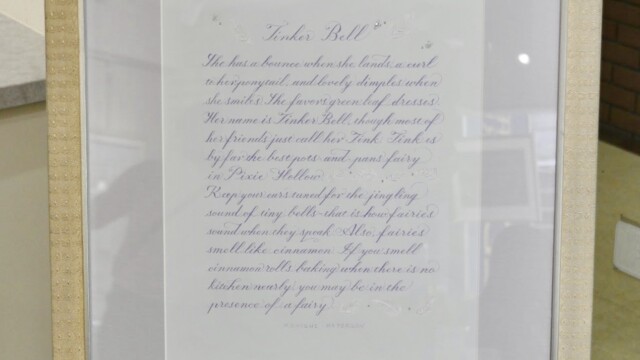 Tinker Bell
She has a bounce when she lands, a curl
to her ponytail, and lovely dimples when
she smiles. She favors green leaf dresses.
Her name is Tinker Bell, though most of
her friends just call her Tink. Tink is
by far the best pots-and-pans fairy
in Pixie Hollow.
Keep your ears tuned for the jingling
sound of tiny bells-that is how fairies
sound when they speak. Also, fairies
smell like cinnamon. If you smell
cinnamon rolls baking when there is no
kitchen nearby, you may be in the
presence of a fairy.